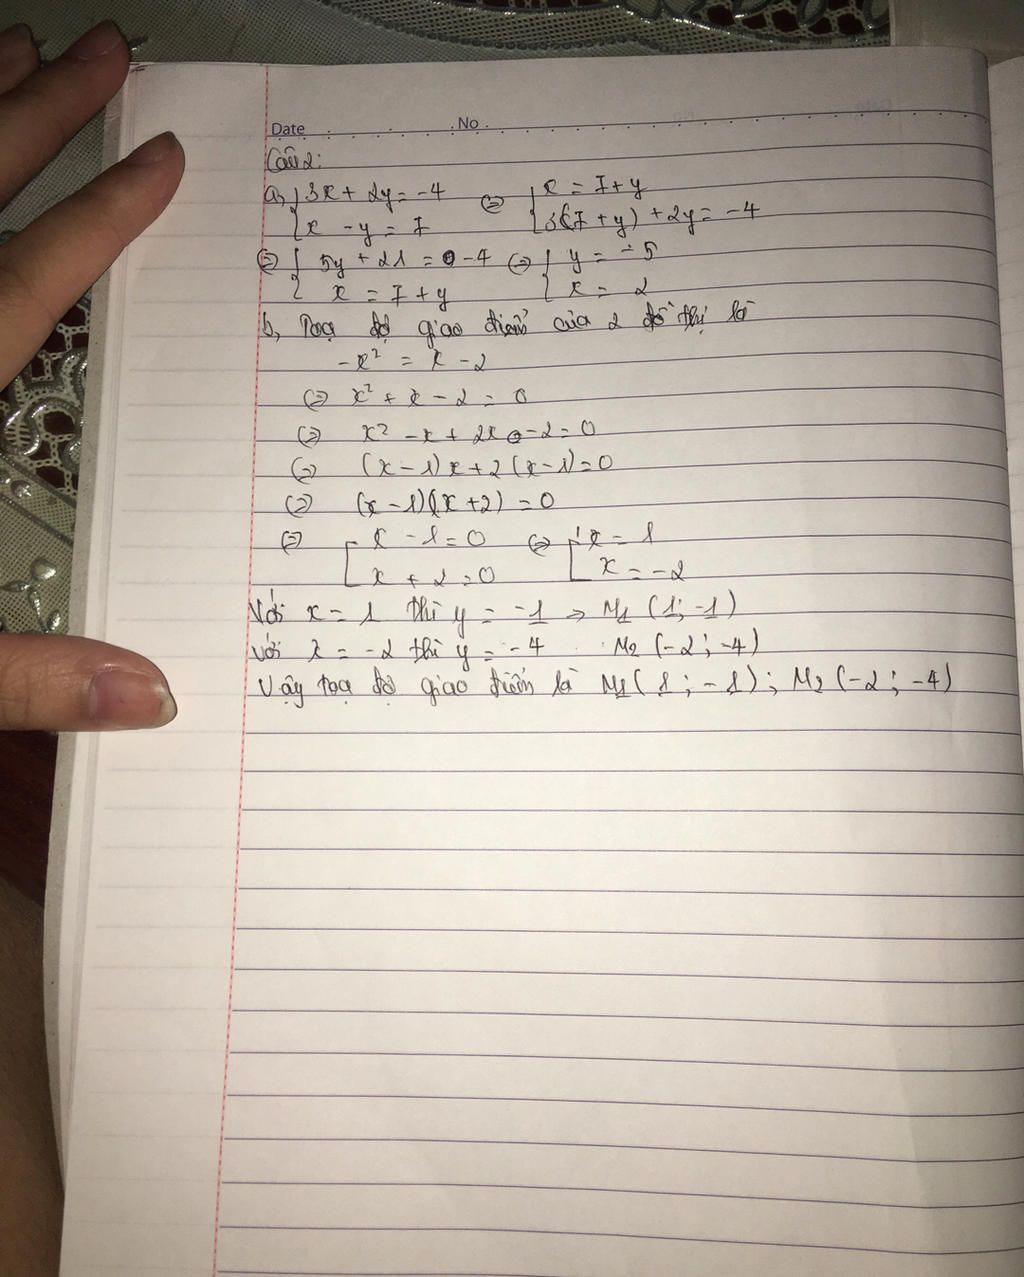 Date No
Câu 2:
a, { 3x + 2y = -4 ⇔ { x = 7 + y
x - y = 7 3(7 + y) + 2y = -4
⇔ { 5y + 21 = -4 ⇔ { y = -5
x = 7 + y x = 2
b, Toạ độ giao điểm của 2 đồ thị là
-x² = x - 2
⇔ x² + x - 2 = 0
⇔ x² - x + 2x - 2 = 0
⇔ (x - 1)x + 2(x - 1) = 0
⇔ (x - 1)(x + 2) = 0
⇔ [ x - 1 = 0 ⇔ [ x = 1
x + 2 = 0 x = -2
Với x = 1 thì y = -1 → M1 (1; -1)
với x = -2 thì y = -4 M2 (-2; -4)
Vậy toạ độ giao điểm là M1 (1; -1); M2 (-2; -4)